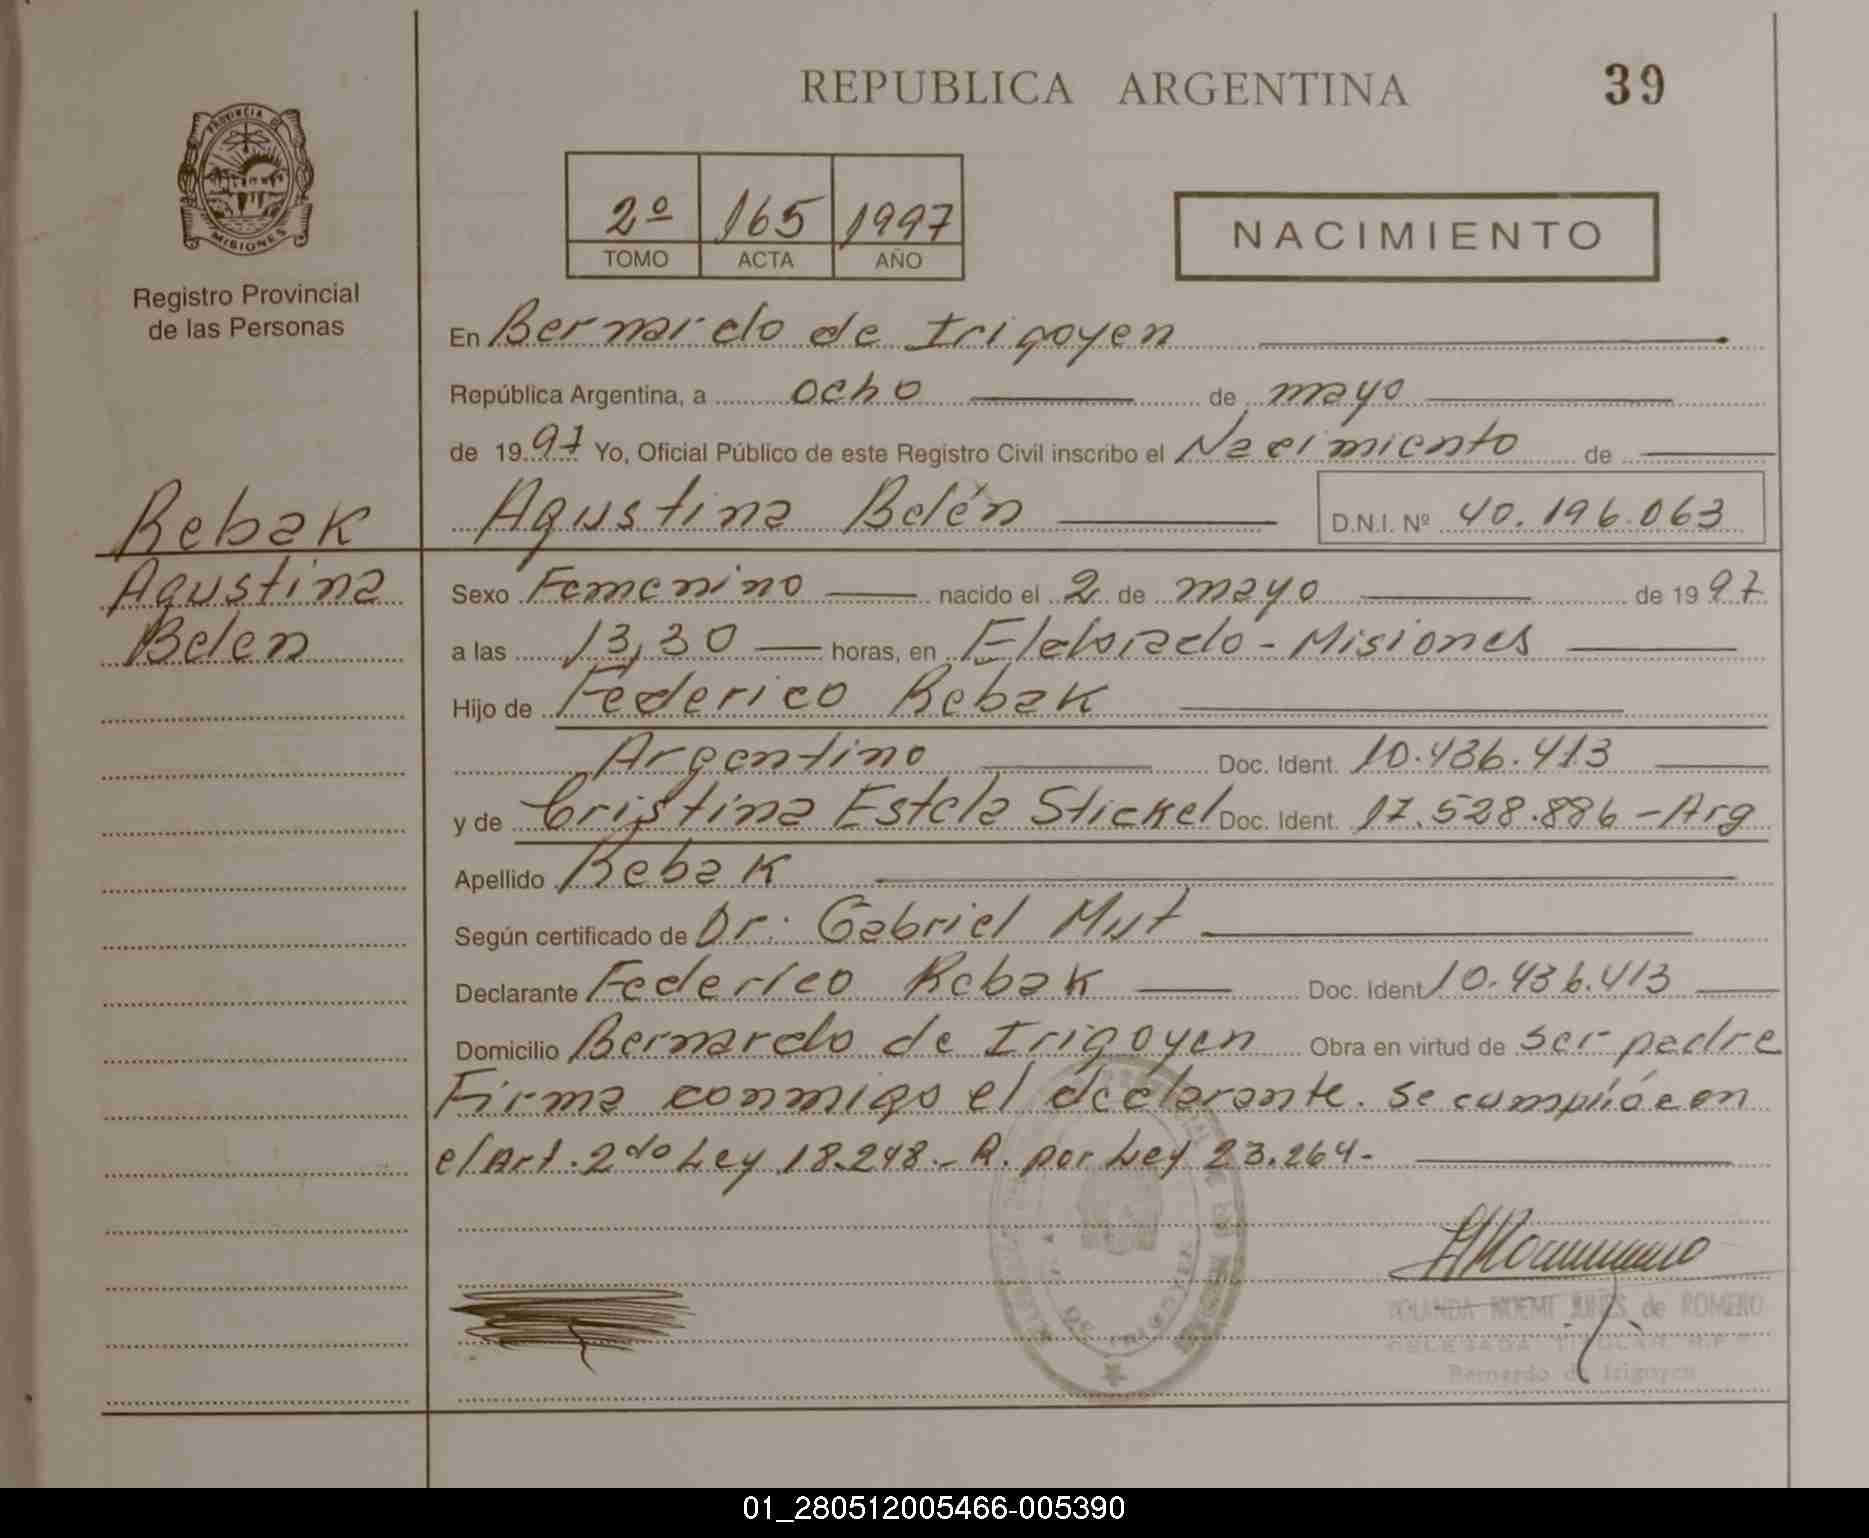 REPUBLICA ARGENTINA
39
PROVINCIA DE
MISIONES
Registro Provincial
de las Personas
2º 165 1997
TOMO ACTA AÑO
NACIMIENTO
En Bernardo de Irigoyen
República Argentina, a ocho de mayo
de 1997 Yo, Oficial Público de este Registro Civil inscribo el Nacimiento de
Rebak
Agustina
Belen
Agustina Belén D.N.I. Nº 40.196.063
Sexo Femenino nacido el 2 de mayo de 1997
a las 13,30 horas, en Eldorado - Misiones
Hijo de Federico Rebak
Argentino Doc. Ident. 10.436.413
y de Cristina Estela Stickel Doc. Ident. 17.528.886 - Arg
Apellido Rebak
Según certificado de Dr. Gabriel Mut
Declarante Federico Rebak Doc. Ident 10.436.413
Domicilio Bernardo de Irigoyen Obra en virtud de ser padre
Firma conmigo el declarante. Se cumplió con
el Art. 2do Ley 18.248.- R. por Ley 23.264-
YOLANDA NOEMI de ROMERO
DELEGADA TITULAR R.P.
Bernardo de Irigoyen
DE IRIGOYEN
01_280512005466-005390